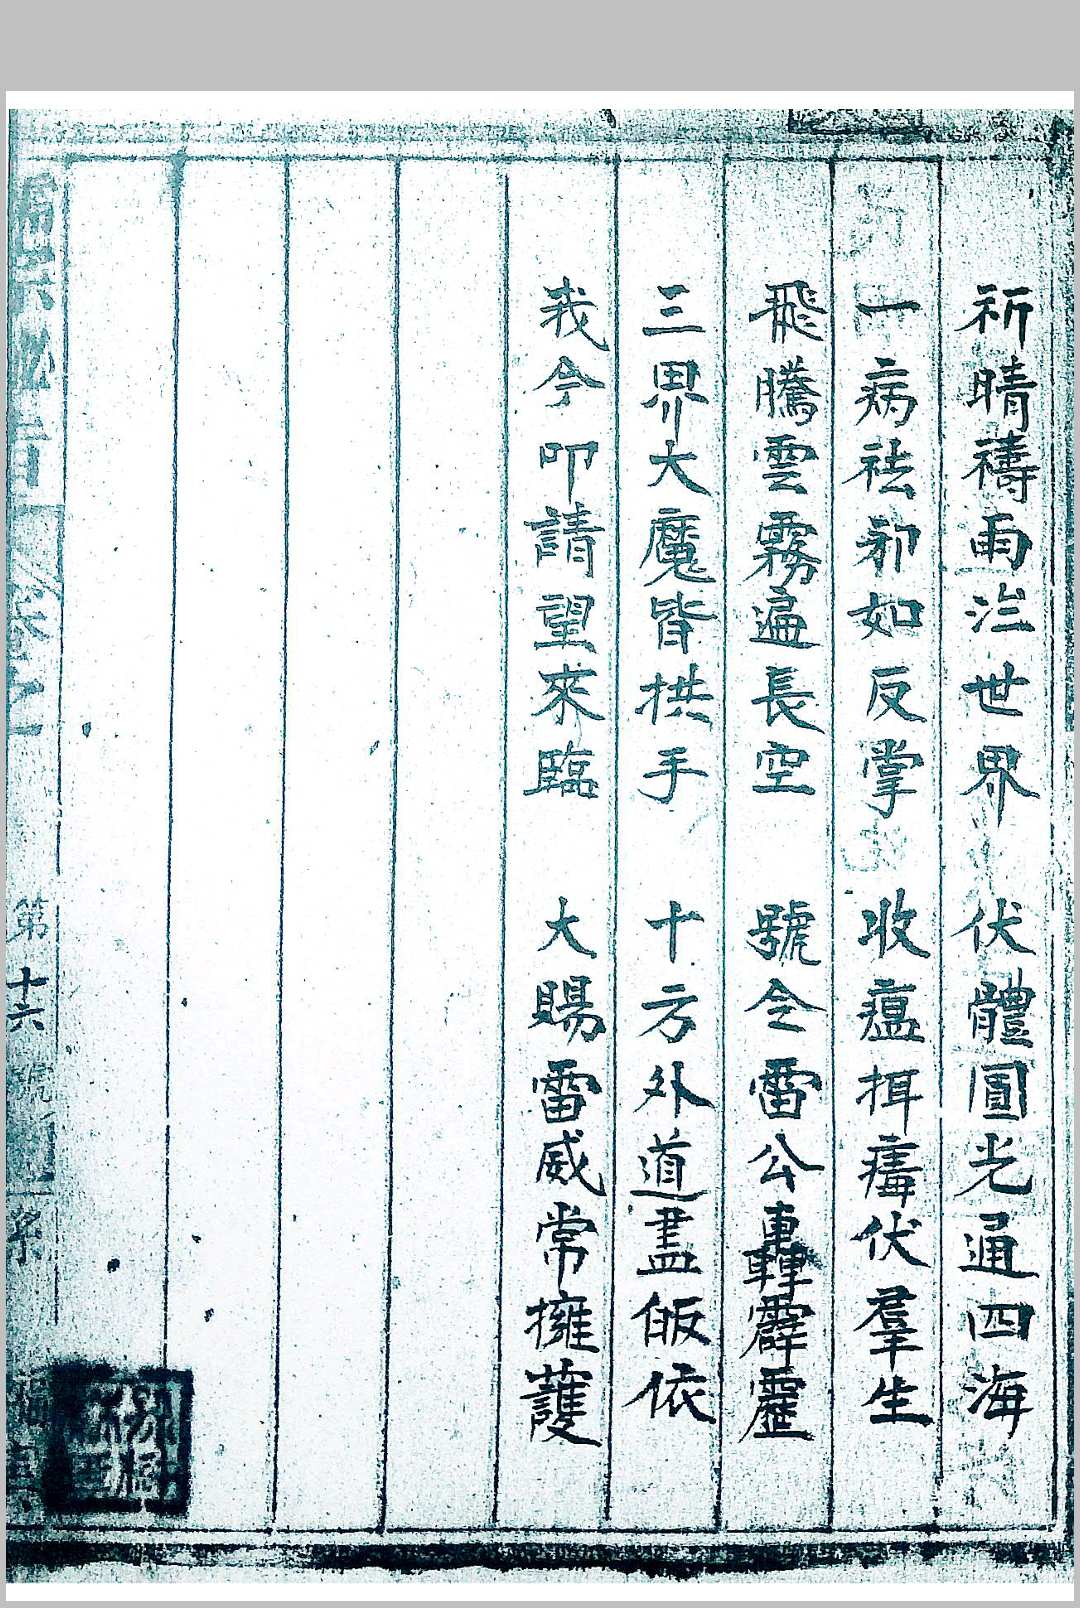 祈晴禱雨沴世界　伏體圓光通四海
一病祛邪如反掌　收瘟捐瘴伏羣生
飛騰雲霧遍長空　號令雷公轟霹靂
三界大魔皆拱手　十方外道盡皈依
我今叩請望來臨　大賜雷威常擁護
第十六號